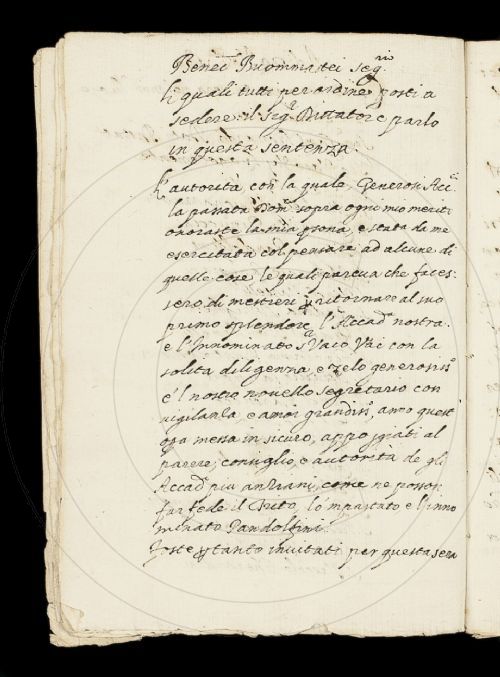 Bened Buommattei Segrio
li quali tutti per ordine posti a
sedere il Sigr Dittatore parlò
in questa sentenza
L'autorità, con la quale, Generosi Acci
la passata Domca sopra ogni mio merito
onoraste la mia psona, è stata da me
esercitata col pensare ad alcune di
quelle cose le quali pareua che faces
sero di mestieri p ritornare al suo
primo splendore l'Accadia nostra.
e l'Innominato Vaio Vai con la
solita diligenza, e zelo generosiss
e il nostro nouello segretario con
vigilanza e amor grandiss, anno quest
opa messa in sicuro, appoggiati al
parere, consiglio, e autorità de gli
Accadi più anziani, come ne posson
far fede il Trito, lo 'mpastato e l'inno
minato Pandolfini.
Foste ptanto inuitati per questa sera